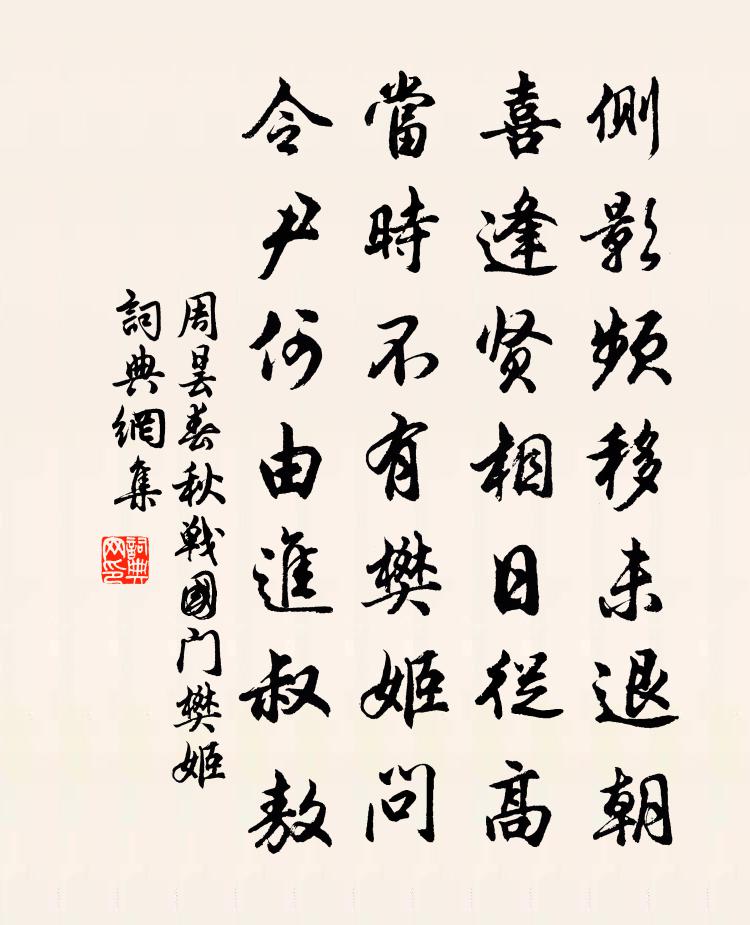 側影頻移未退朝
喜逢贤相日從高
當時不有樊姬问
令尹何由進叔敖
周昙春秋戰國门樊姬
詞典網集
詞典网印